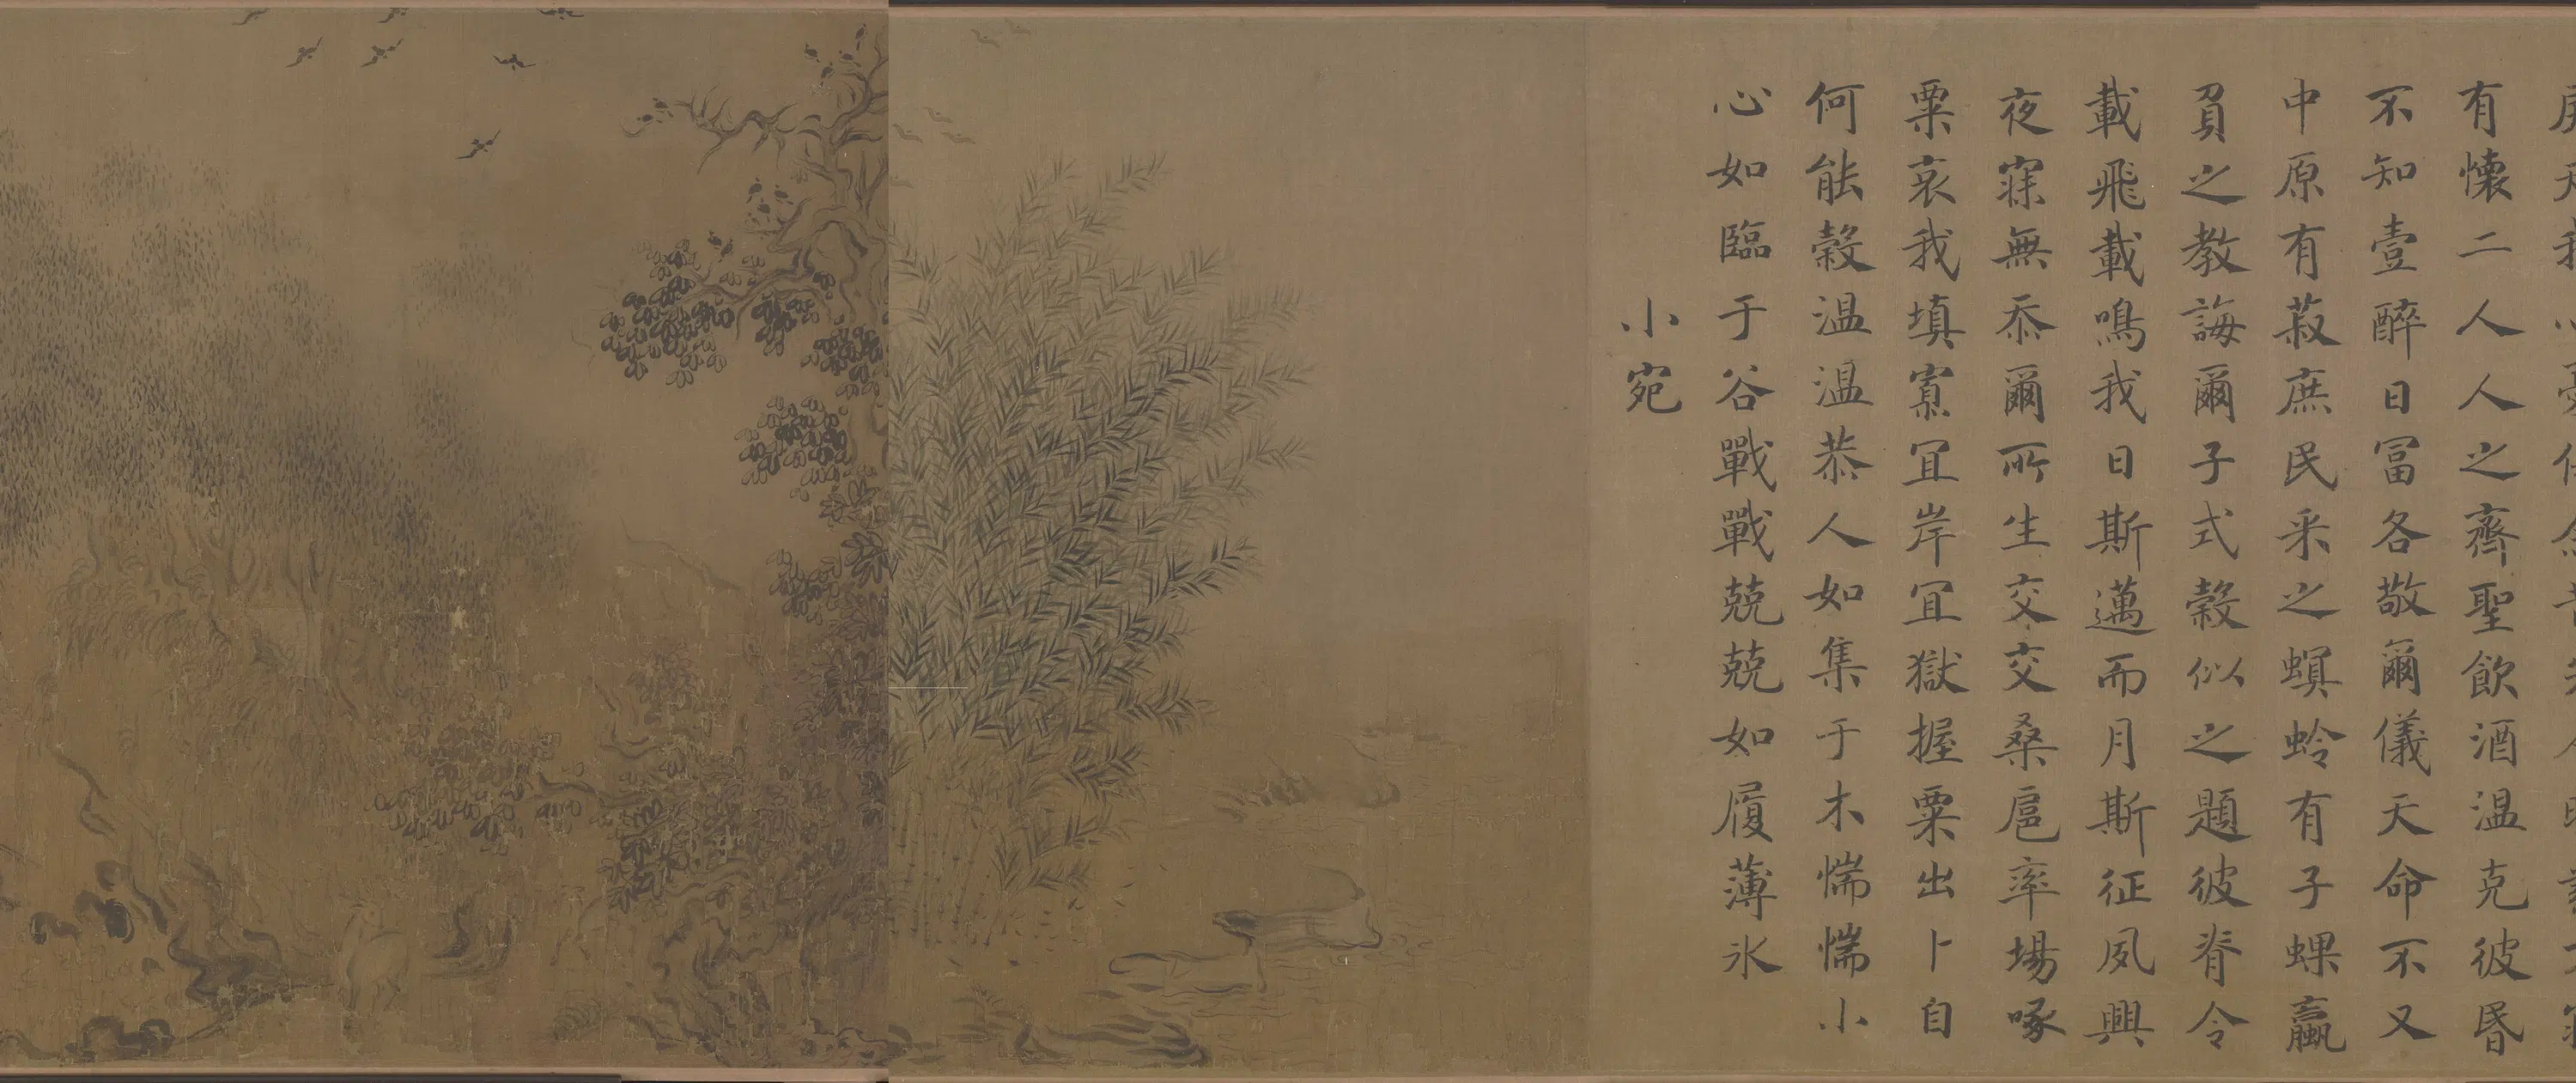 有懷二人人之齊聖飲酒温克彼昬
不知壹醉日冨各敬爾儀天命不又
中原有菽庶民采之螟蛉有子蜾蠃
負之教誨爾子式穀似之題彼脊令
載飛載鳴我日斯邁而月斯征夙興
夜寐無忝爾所生交交桑扈率場啄
粟哀我填寡冝岸冝獄握粟出卜自
何能穀温温恭人如集于木惴惴小
心如臨于谷戰戰兢兢如履薄氷
小宛